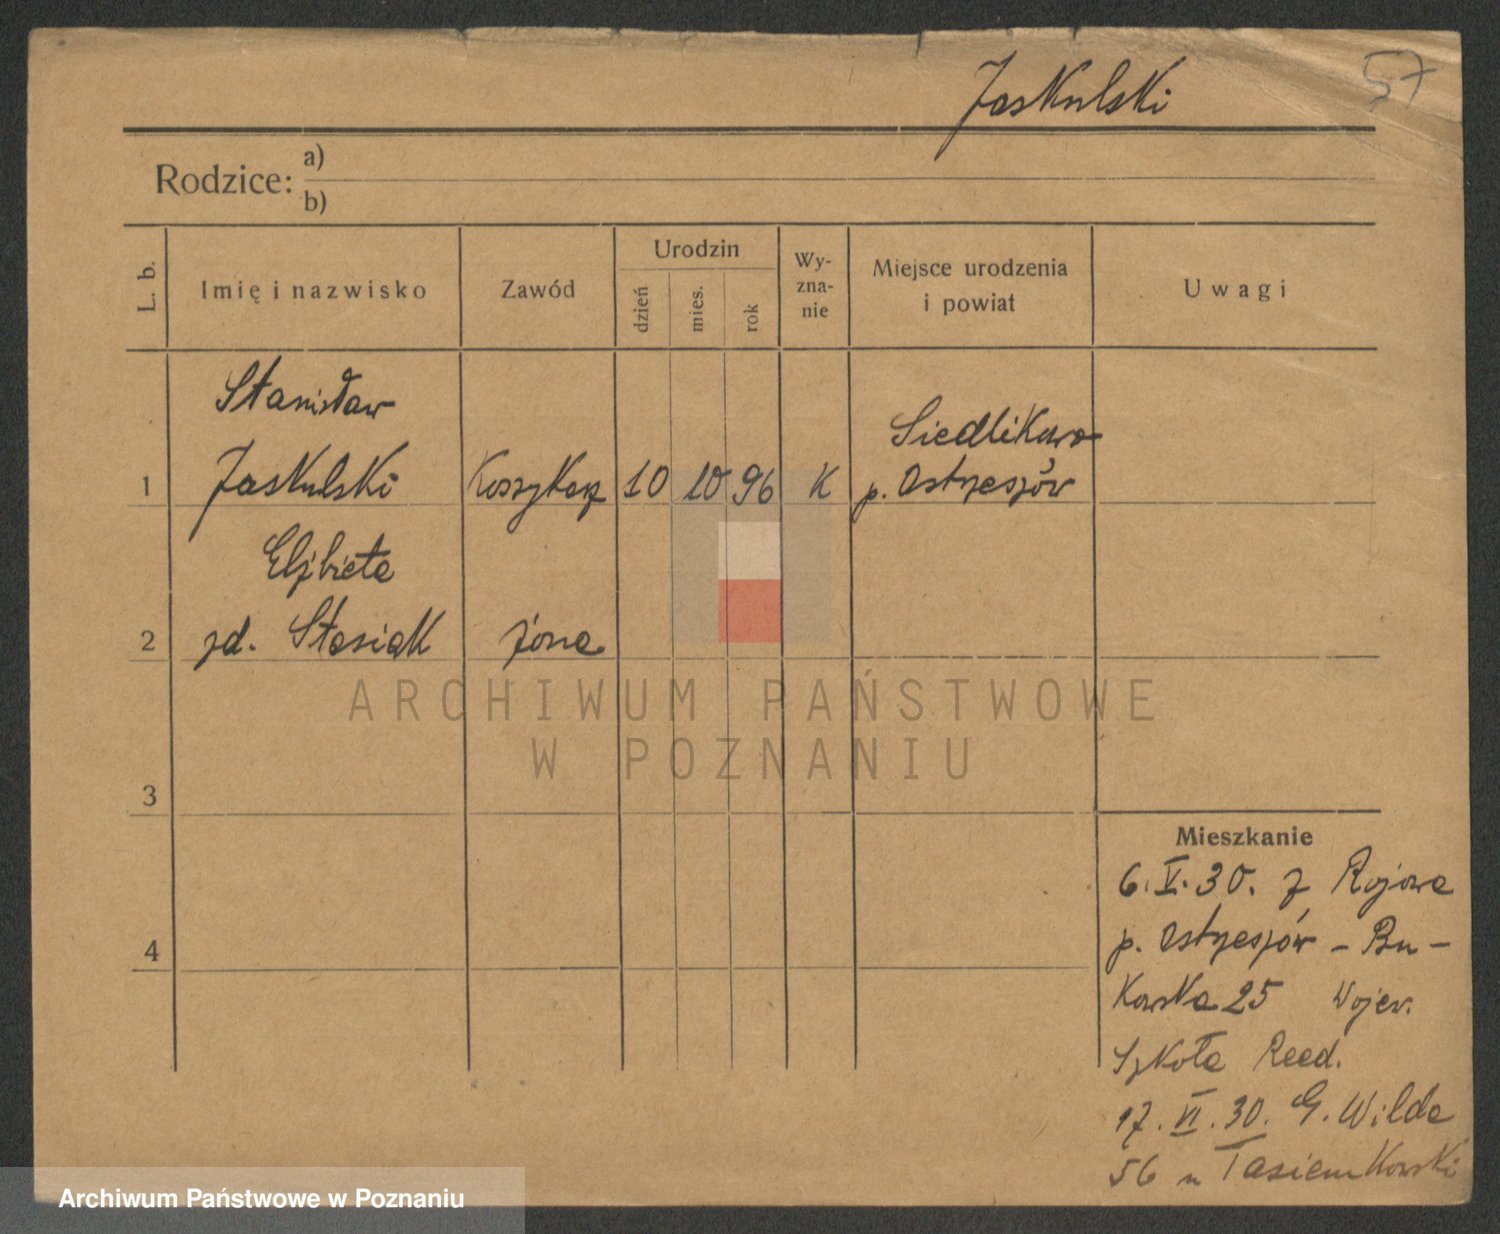 Jaskulski
57
Rodzice: a)
b)
L. b.
Imię i nazwisko
Zawód
Urodzin
dzień
mies.
rok
Wy-
zna-
nie
Miejsce urodzenia
i powiat
Uwagi
Stanisław
Siedlików
1 Jaskulski Koszykarz 10 10 96 K p. Ostrzeszów
Elżbieta
2 zd. Stasiak żona
ARCHIWUM PAŃSTWOWE
W POZNANIU
3
4
Mieszkanie
6.V.30. z Rojowa
p. Ostrzeszów - Bu-
kowska 25 Wojew.
Szkoła
17.VI.30. G. Wilda
56 u Tasiemkowski
Archiwum Państwowe w Poznaniu